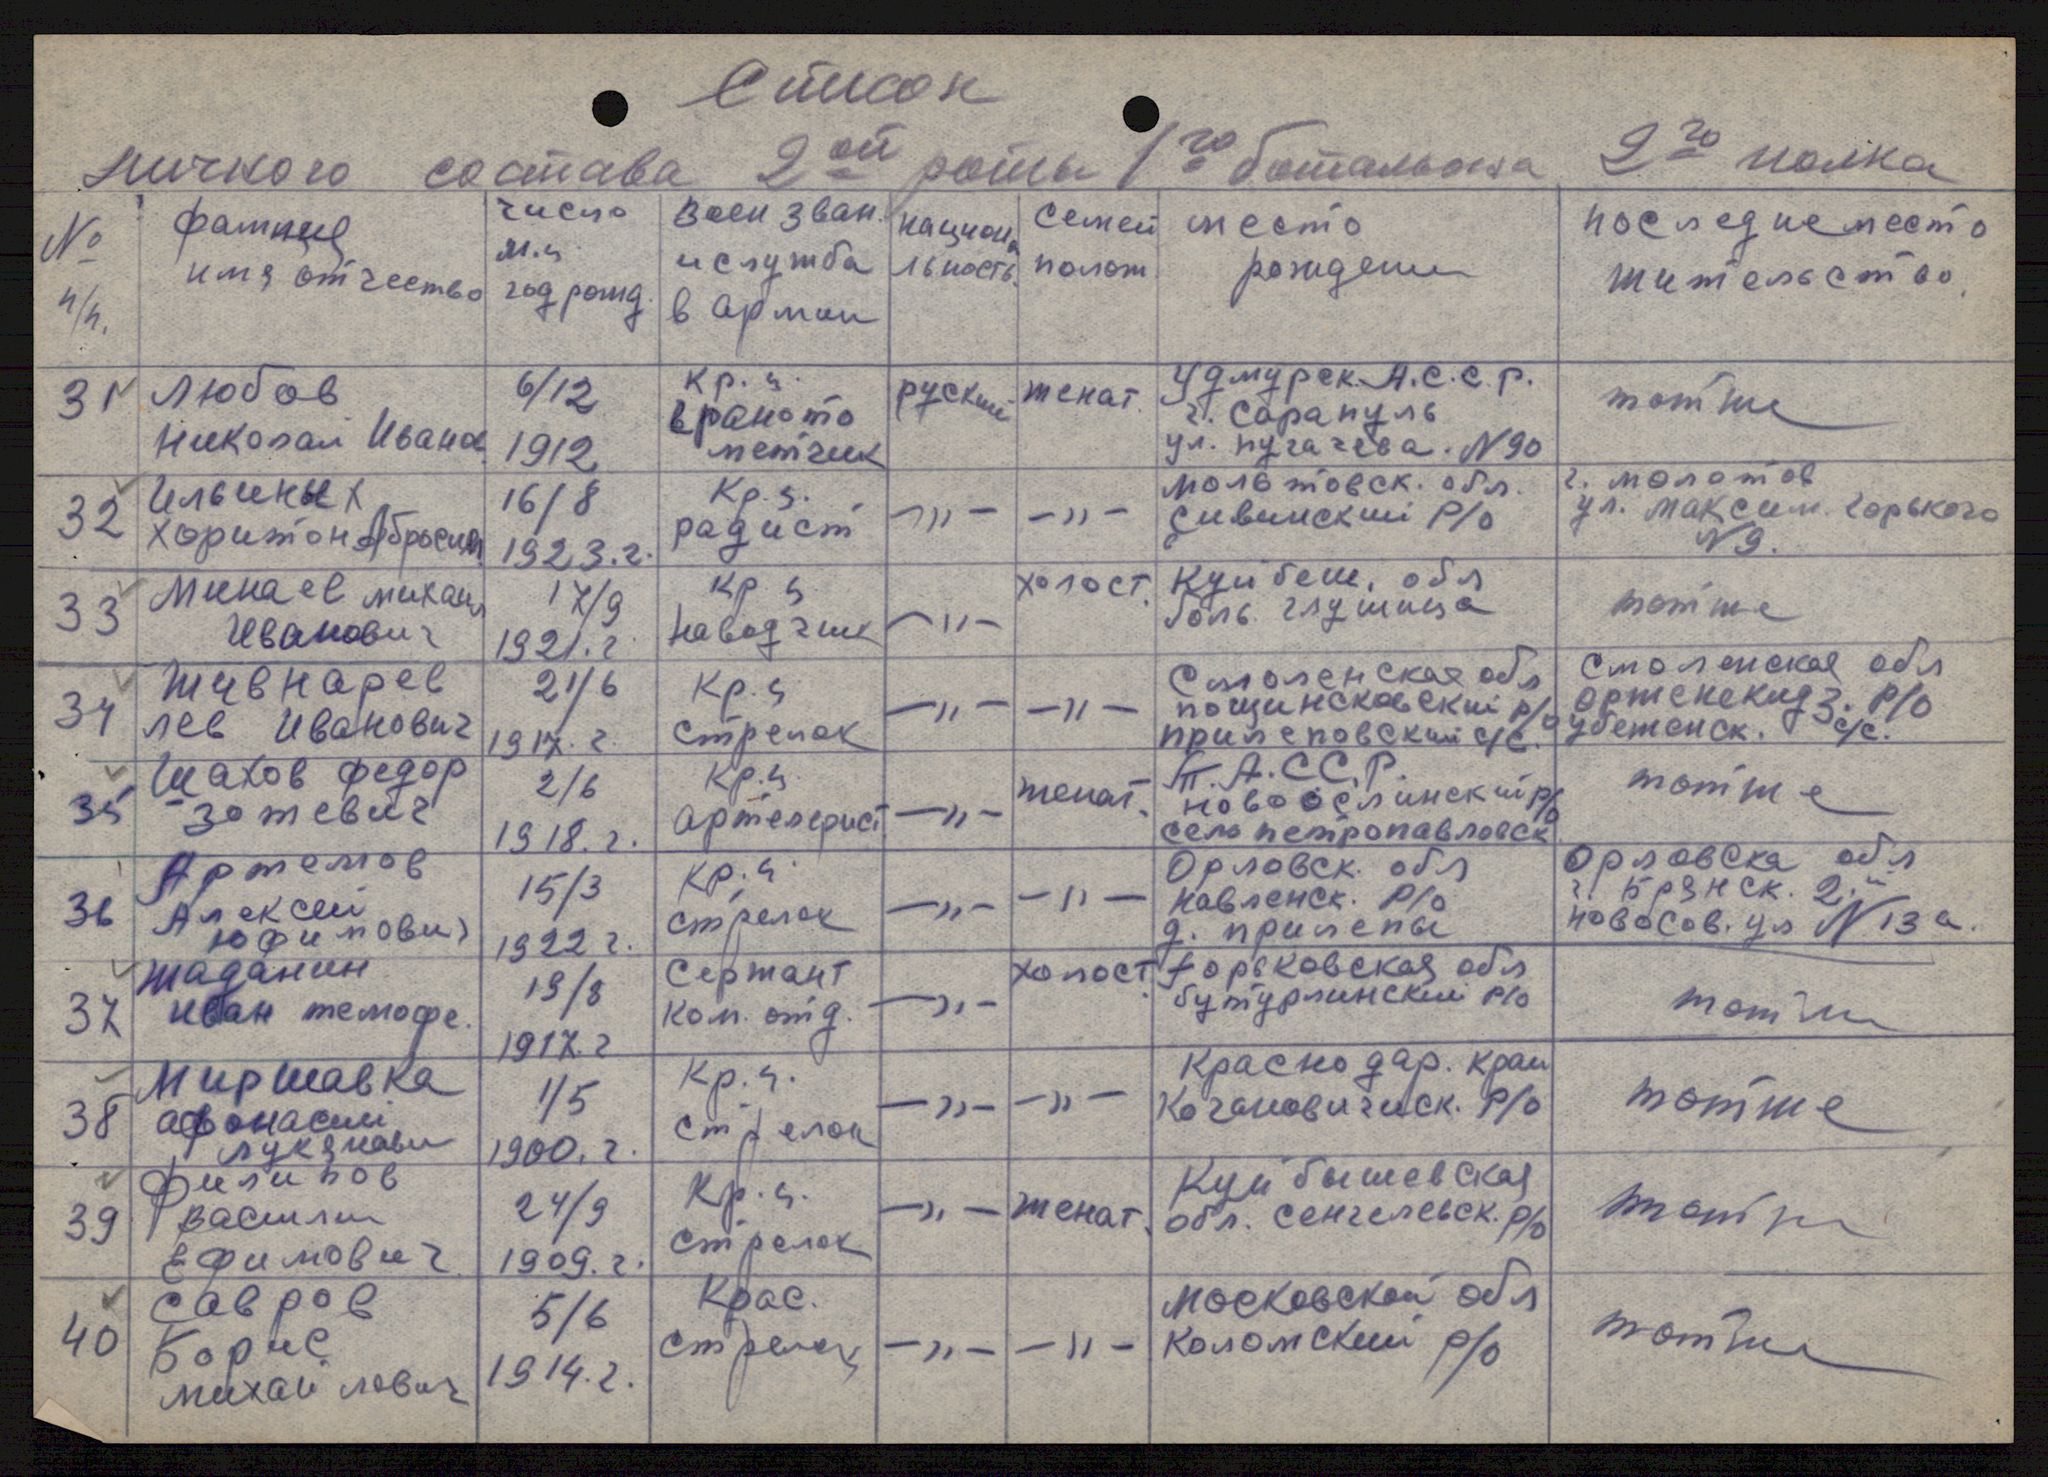 Список
личного состава 2ой роты 1го батальона 2го полка
№ п/п.
фамлия
имя отчество
число
м.ц
год рожд.
воен зван.
и служба
в армии
национа
льность.
семей
полож
место
рождения
последне место
жительство.
31 Любов
Николай Иванов
6/12
1912
Кр. ц.
враното
метчик
руский
женат.
Удмурск. А.С.С.Р.
г. Сарапуль
ул. пугачева. N 90
тотже
32 Ильиных
Харитон Абросим
16/8
1923.г.
Кр.ц.
радист
-"-
-"-
молотовск. обл.
Сивинский Р/о
г. молотов
ул. Максим. Горького
N 9.
33 Минаев михаил
Иванович
17/9
1921.г.
Кр ц
Наводчик
-"-
холост.
Куйбеш. обл
боль. глушица
тотже
34 Живнарев
лев Иванович
21/6
1917.г.
Кр.ц
стрелок
-"-
-"-
Смоленская обл
починсковский р/о
прилеповский с/с.
Смоленская обл
орженекидз. Р/о
убеженск. с/с.
35 Шахов Федор
Зотевич
2/6
1918.г.
Кр.ц
артелерист
-"-
женат.
Т.А.С.С.Р.
новооелинский р/о
село петропавловск
тотже
36 Артемов
Алексей
Юфимович
15/3
1922 г.
Кр.ц.
стрелок
-"-
-"-
Орловск. обл
навленск. Р/о
д. прилепы
Орловска обл
г. Брянск. 2.й
новосов. ул N 13 а.
37 Жаданин
Иван темофе.
19/8
1917.г
Сержант
Ком. отд.
-"-
холост.
Горьковская обл
бутурлинский р/о
тотже
38 Миршавка
афонасий
лукянови
1/5
1900.г.
Кр.ц.
стрелок
-"-
-"-
Краснодар. край
Кагановичиск. Р/о
тотже
39 Филипов
василии
Ефимович
24/9
1909.г.
Кр.ц.
стрелок
-"-
женат.
Куйбышевская
обл. сенгелевск. р/о
тотже
40 Савров
Борис
михайлович
5/6
1914.г.
Крас.
стрелец
-"-
-"-
Московской обл
Коломский р/о
тотже